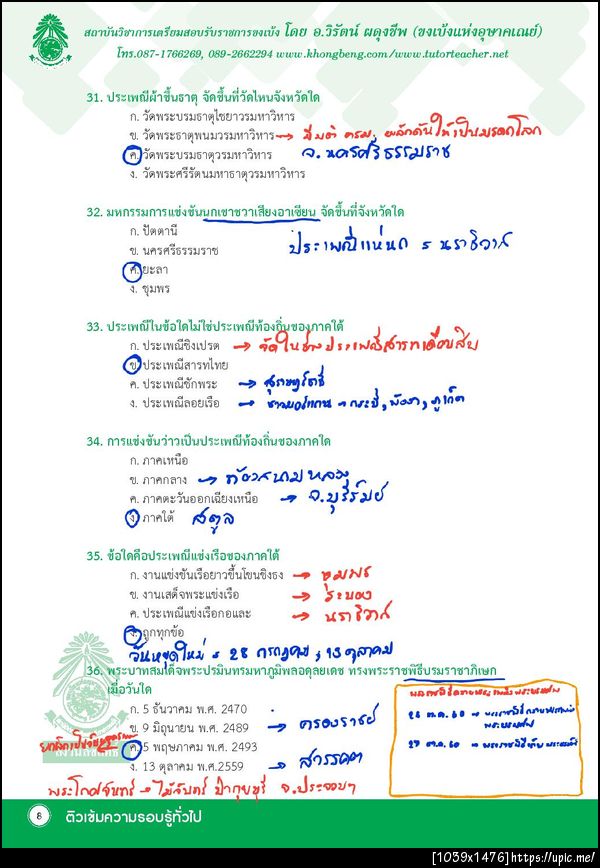 สถาบันวิชาการเตรียมสอบรับราชการขงเบ้ง โดย อ.วิรัตน์ ผดุงชีพ (ขงเบ้งแห่งอุษาคเณย์)
โทร.087-1766269, 089-2662294 www.khongbeng.com /www.tutorteacher.net
31. ประเพณีผ้าขึ้นธาตุ จัดขึ้นที่วัดไหนจังหวัดใด
ก. วัดพระบรมธาตุไชยาวรมหาวิหาร
ข. วัดพระธาตุพนมวรมหาวิหาร → มีมติ ครม. ผลักดันให้เป็นมรดกโลก
ค. วัดพระบรมธาตุวรมหาวิหาร จ.นครศรีธรรมราช
ง. วัดพระศรีรัตนมหาธาตุวรมหาวิหาร
32. มหกรรมการแข่งขันนกเขาชวาเสียงอาเซียน จัดขึ้นที่จังหวัดใด
ก. ปัตตานี
ข. นครศรีธรรมราช ประเพณีแห่นก = นราธิวาส
ค. ยะลา
ง. ชุมพร
33. ประเพณีในข้อใดไม่ใช่ประเพณีท้องถิ่นของภาคใต้
ก. ประเพณีชิงเปรต → จัดในช่วงประเพณีสารทเดือนสิบ
ข. ประเพณีสารทไทย
ค. ประเพณีชักพระ → สุราษฎร์ธานี
ง. ประเพณีลอยเรือ → กระบี่, พังงา, ภูเก็ต
34. การแข่งขันว่าวเป็นประเพณีท้องถิ่นของภาคใด
ก. ภาคเหนือ
ข. ภาคกลาง → ท้องสนามหลวง
ค. ภาคตะวันออกเฉียงเหนือ → จ.บุรีรัมย์
ง. ภาคใต้ สตูล
35. ข้อใดคือประเพณีแข่งเรือของภาคใต้
ก. งานแข่งขันเรือยาวขึ้นโขนชิงธง → ชุมพร
ข. งานเสด็จพระแข่งเรือ → ระนอง
ค. ประเพณีแข่งเรือกอและ → นราธิวาส
ง. ถูกทุกข้อ
วันหยุดใหม่ = 28 กรกฎาคม, 13 ตุลาคม
36. พระบาทสมเด็จพระปรมินทรมหาภูมิพลอดุลยเดช ทรงพระราชพิธีบรมราชาภิเษก
เมื่อวันใด
ก. 5 ธันวาคม พ.ศ. 2470
ข. 9 มิถุนายน พ.ศ. 2489 → ครองราชย์
ค. 5 พฤษภาคม พ.ศ. 2493
ง. 13 ตุลาคม พ.ศ.2559 → สวรรคต
26 ต.ค. 60 →
27 ต.ค. 60 →
พระโกศจันทร์ → ไม้จันทร์ ป่ากุยบุรี จ.ประจวบฯ
8 ติวเข้มความรอบรู้ทั่วไป
[1039x1476]https://upic.me/